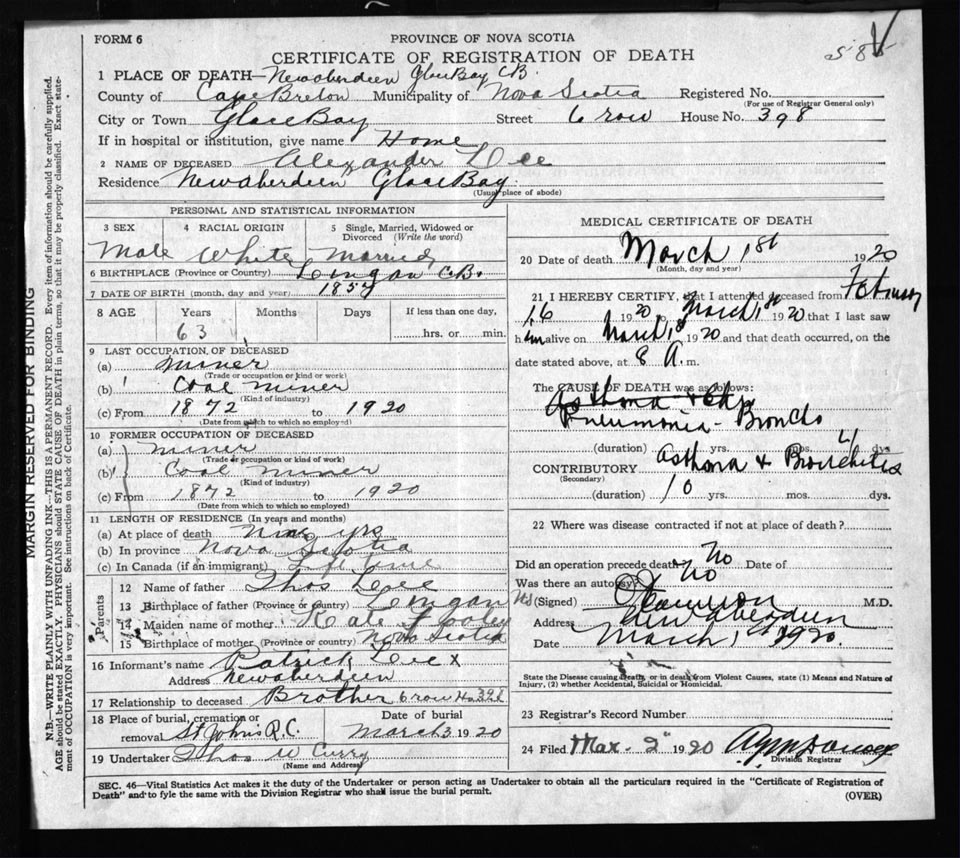 58 V
FORM 6
PROVINCE OF NOVA SCOTIA
CERTIFICATE OF REGISTRATION OF DEATH
1 PLACE OF DEATH—Newaberdeen Glace Bay C.B.
County of Cape Breton Municipality of Nova Scotia Registered No.
(For use of Registrar General only)
City or Town Glace Bay Street 6 row House No. 398
If in hospital or institution, give name Home
2 NAME OF DECEASED Alexander
Residence Newaberdeen Glace Bay
(Usual place of abode)
PERSONAL AND STATISTICAL INFORMATION
3 SEX 4 RACIAL ORIGIN 5 Single, Married, Widowed or Divorced (Write the word)
Male White Married
6 BIRTHPLACE (Province or Country) Lingan C.B.
7 DATE OF BIRTH (month, day and year) 1857
8 AGE Years Months Days If less than one day,
63 hrs. or min.
9 LAST OCCUPATION, OF DECEASED
(a) Miner
(Trade or occupation or kind or work)
(b) Coal Miner
(Kind of industry)
(c) From 1872 to 1920
(Date from which to which so employed)
10 FORMER OCCUPATION OF DECEASED
(a) Miner
(Trade or occupation or kind of work)
(b) Coal Miner
(Kind of industry)
(c) From 1872 to 1920
(Date from which to which so employed)
11 LENGTH OF RESIDENCE (In years and months)
(a) At place of death Nine yrs
(b) In province Nova Scotia
(c) In Canada (if an immigrant) Life time
Parents
12 Name of father Thos
13 Birthplace of father (Province or country) Lingan
14 Maiden name of mother Kate
15 Birthplace of mother (Province or country) Nova Scotia
16 Informant's name Patrick x
Address Newaberdeen
17 Relationship to deceased Brother 6 row No 398
18 Place of burial, cremation or removal St Johns R.C. Date of burial March 3 1920
19 Undertaker Thos W Curry
(Name and Address)
MEDICAL CERTIFICATE OF DEATH
20 Date of death March 1st 1920
(Month, day and year)
21 I HEREBY CERTIFY, that I attended deceased from February
16 1920 to March 1st 1920 that I last saw
him alive on March 1st 1920 and that death occurred, on the
date stated above, at 8 A. m.
The CAUSE OF DEATH was as follows:
Asthma +
Pneumonia - Broncho
(duration) yrs. mos. 4 dys
CONTRIBUTORY Asthma & Bronchitis
(Secondary)
(duration) 10 yrs. mos. dys.
22 Where was disease contracted if not at place of death?
Did an operation precede death? No Date of
Was there an autopsy? No
(Signed) M.D.
Address Newaberdeen
Date March 1st 1920
State the Disease causing Death, or in death from Violent Causes, state (1) Means and Nature of
Injury, (2) whether Accidental, Suicidal or Homicidal.
23 Registrar's Record Number
24 Filed Mar. 2" 1920
Division Registrar
SEC. 46—Vital Statistics Act makes it the duty of the Undertaker or person acting as Undertaker to obtain all the particulars required in the "Certificate of Registration of
Death" and to fyle the same with the Division Registrar who shall issue the burial permit.
(OVER)
MARGIN RESERVED FOR BINDING
N.B.—WRITE PLAINLY WITH UNFADING INK—THIS IS A PERMANENT RECORD. Every item of information should be carefully supplied.
AGE should be stated EXACTLY. PHYSICIANS should STATE CAUSE OF DEATH in plain terms, so that it may be properly classified. Exact state-
ment of OCCUPATION is very important. See instructions on back of Certificate.